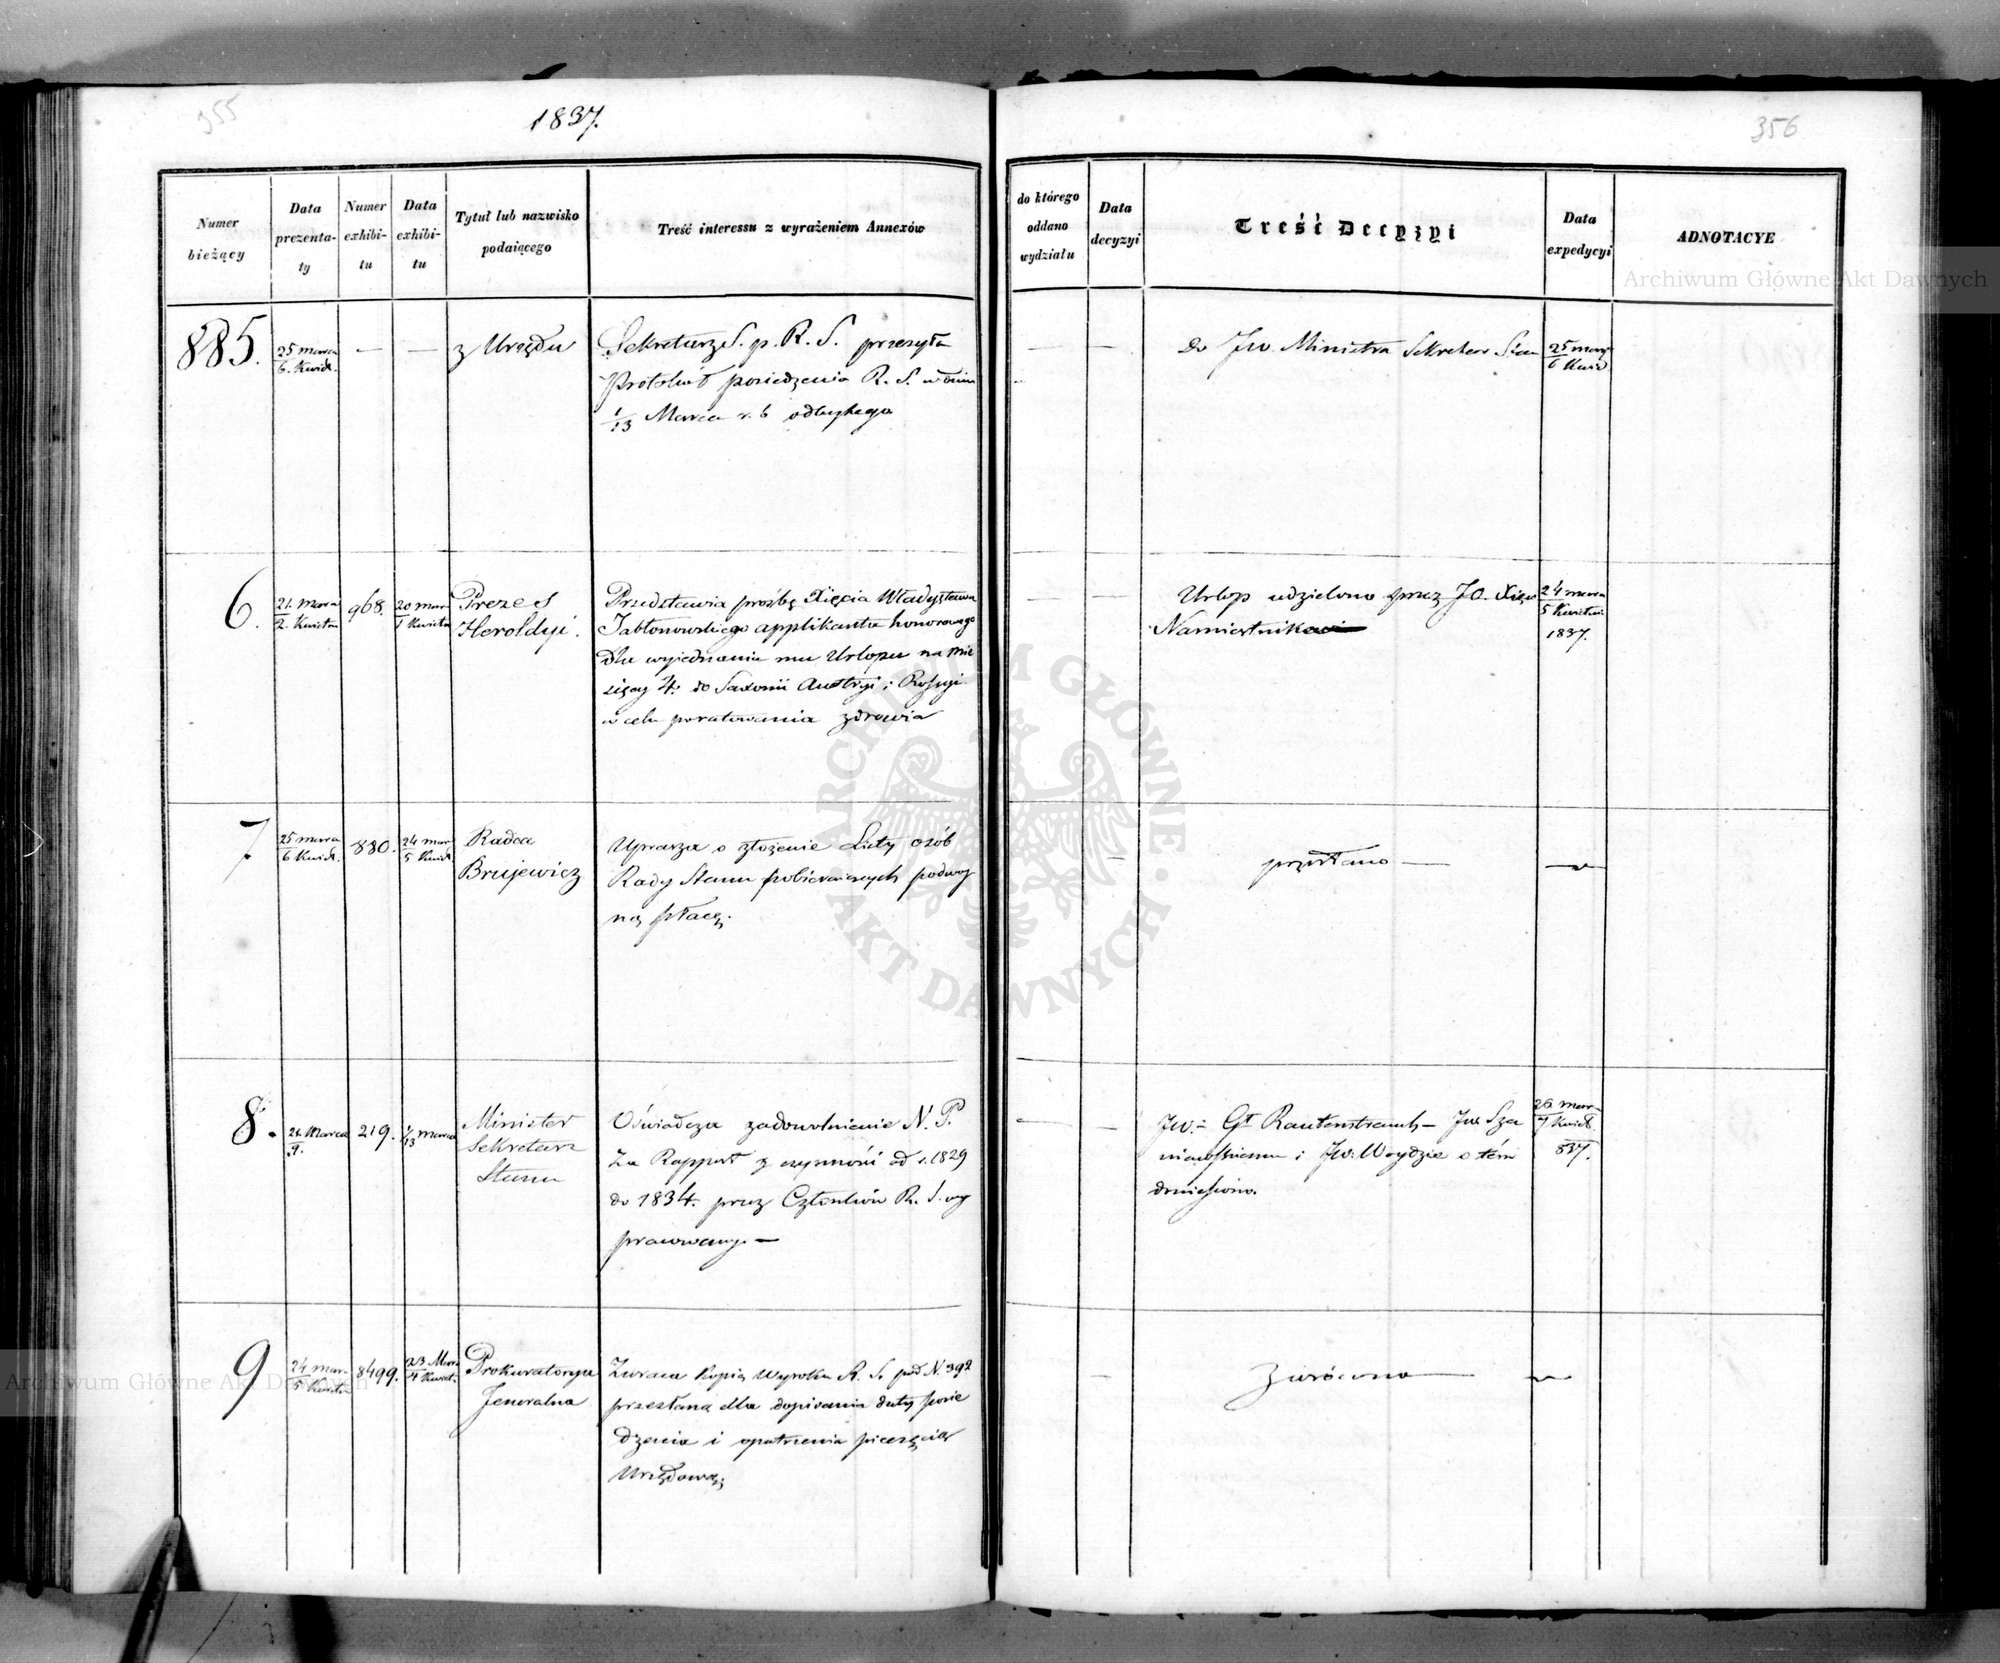 355
1837.
356
Numer
bieżący
Data
prezenta-
ty
Numer
exhibi-
tu
Data
exhibi-
tu
Tytuł lub nazwisko
podaiącego
Treść interessu z wyrażeniem Annexów
do którego
oddano
wydziału
Data
decyzyi
Treść Decyzyi
Data
expedycyi
ADNOTACYE
885.
25 marca
6. Kwiet.
z Urzędu
Sekretarz S. p. R. S. przesyła
Protokół posiedzenia R. S. w dniu
1/13 Marca r. b odbytego
Do Jw. Ministra Sekretarza Stanu
25 marca
6 Kwiet
6.
21. Marca
2. Kwietn
968.
20 mar
1 Kwietn
Prezes
Heroldyi.
Przedstawia prośbę Xięcia Władysława
Jabłonowskiego applikanta honorowego
dla wyjednania mu Urlopu na mie
sięcy 4. do Saxonii Austryi i Rossyi
w celu poratowania zdrowia
Urlop udzielono przez J.O. Xięcia
Namiestnika
24 marca
5 Kwietnia
1837.
7
25 marca
6 Kwiet.
880.
24 mar
5 Kwiet
Radca
Brujewicz
Uprasza o złożenie Listy osób
Rady Stanu pobierających podwoj
ną płacę.
przesłano —
8.
21. Marca
9.
219.
1/13 marca
Minister
Sekretarz
Stanu
Oświadcza zadowolnienie N. P.
Za Rapport z czynności od r. 1829
do 1834. przez Członków R. S. wy
pracowany. —
Jw. Gł Rautenstrauch — Jw. Sza
niawskiemu i Jw. Woydzie o tém
doniesiono.
26 mar
7 Kwiet.
837.
9
24 mar
5 Kwietn
8499.
23 Mar
4 Kwiet.
Prokuratorya
Jeneralna
Zwraca kopią Wyroku R. S. pod N. 392
przesłaną dla dopisania daty posie
dzenia i opatrzenia pieczęcią
Urzędową.
Zwrócono
Archiwum Główne Akt Dawnych
Archiwum Główne Akt Dawnych
ARCHIWUM GŁÓWNE AKT DAWNYCH